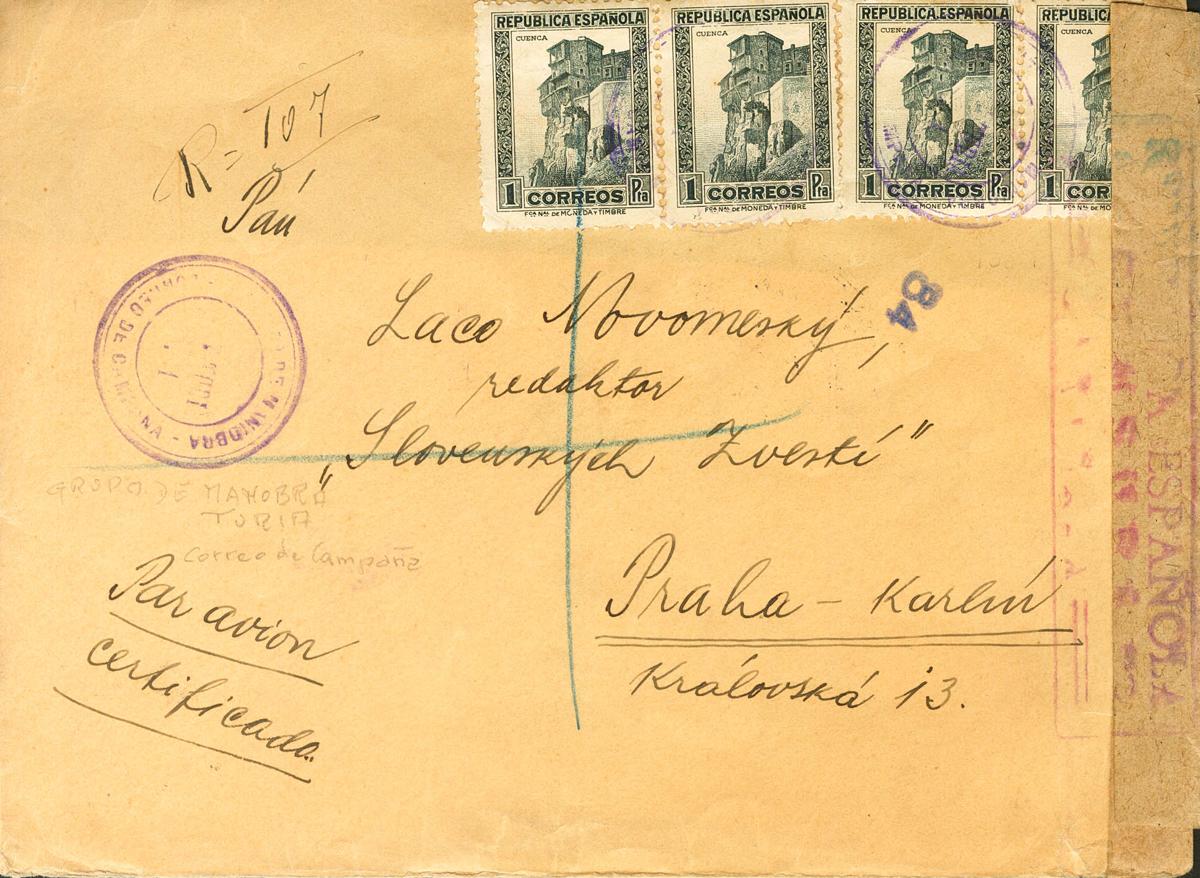 REPUBLICA ESPAÑOLA REPUBLICA ESPAÑOLA REPUBLICA ESPAÑOLA REPUBLIC
CUENCA CUENCA CUENCA CUENCA
1 CORREOS Pta 1 CORREOS Pta 1 CORREOS Pta 1 CORR
Fca Nal DE MONEDA Y TIMBRE Fca Nal DE MONEDA Y TIMBRE Fca Nal DE MONEDA Y TIMBRE Fca Nal DE MO
R = 107
Pán
84
Laco Novomeský,
redaktor
„Slovenských Zvestí“
CORREO DE CAMPAÑA - DE MANIOBRA
GRUPO DE MANOBRA
TURIA
Correo de Campaña
Par avion
certificada.
Praha - Karlín
Královská 13.
ESPAÑOLA